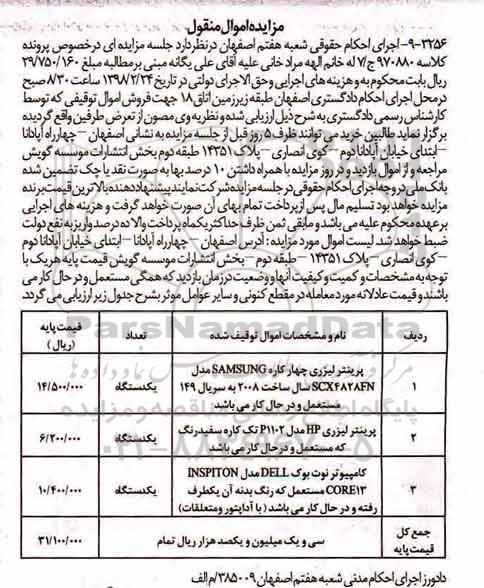 مزایده اموال منقول
۹-۳۲۵۶- اجرای احکام حقوقی شعبه هفتم اصفهان در نظر دارد جلسه مزایده ای در خصوص پرونده
کلاسه ۹۷۰۸۸۰ ج/۷ له خانم الهه مراد خانی علیه آقای علی یگانه مبنی بر مطالبه مبلغ ۲۹/۷۵۰/۱۶۰
ریال بابت محکوم به و هزینه های اجرایی و حق الاجرای دولتی در تاریخ ۱۳۹۸/۲/۲۴ ساعت ۸/۳۰ صبح
در محل اجرای احکام دادگستری اصفهان طبقه زیرزمین اتاق ۱۸ جهت فروش اموال توقیفی که توسط
کارشناس رسمی دادگستری به شرح ذیل ارزیابی شده و نظریه وی مصون از تعرض طرفین واقع گردیده
برگزار نماید طالبین خرید می توانند ظرف ۵ روز قبل از جلسه مزایده به نشانی اصفهان – چهارراه آپادانا
– ابتدای خیابان آپادانا دوم – کوی انصاری – پلاک ۱۴۳۵۱ طبقه دوم بخش انتشارات موسسه گویش
مراجعه و از اموال بازدید و در روز مزایده با همراه داشتن ۱۰ درصد بها به صورت نقد یا چک تضمین شده
بانک ملی در وجه اجرای احکام حقوقی در جلسه مزایده شرکت نمایند پیشنهاد دهنده بالاترین قیمت برنده
مزایده خواهد بود تسلیم مال پس از پرداخت تمام بهای آن صورت خواهد گرفت و هزینه های اجرایی
بر عهده محکوم علیه می باشد و مابقی ثمن ظرف حداکثر یکماه پرداخت والا ده درصد واریز به نفع دولت
ضبط خواهد شد. لیست اموال مورد مزایده : آدرس اصفهان – چهارراه آپادانا – ابتدای خیابان آپادانا دوم
– کوی انصاری – پلاک ۱۴۳۵۱ – طبقه دوم – بخش انتشارات موسسه گویش قیمت پایه هر یک با
توجه به مشخصات و کمیت و کیفیت آنها و وضعیت در زمان بازدید که همگی مستعمل و در حال کار می
باشند و قیمت عادلانه مورد معامله در مقطع کنونی و سایر عوامل موثر بشرح جدول زیر ارزیابی می گردد.
ردیف نام و مشخصات اموال توقیف شده تعداد قیمت پایه (ریال)
۱ پرینتر لیزری چهار کاره SAMSUNG مدل یکدستگاه ۱۴/۵۰۰/۰۰۰
SCX4828FN سال ساخت ۲۰۰۸ به سریال ۱۴۹
مستعمل و در حال کار می باشد
۲ پرینتر لیزری HP مدل P1102 تک کاره سفیدرنگ یکدستگاه ۶/۲۰۰/۰۰۰
که مستعمل و در حال کار می باشد
۳ کامپیوتر نوت بوک DELL مدل INSPITON یکدستگاه ۱۰/۴۰۰/۰۰۰
CORE13 مستعمل که رنگ بدنه آن یکطرف
رفته و در حال کار می باشد (با آداپتور ومتعلقات)
جمع کل قیمت پایه سی و یک میلیون و یکصد هزار ریال تمام ۳۱/۱۰۰/۰۰۰
دادورز اجرای احکام مدنی شعبه هفتم اصفهان ۳۸۵۰۰۹/م الف
ParsNamadData
۰۲۱-۸۸۳۴۹۶۷۰-۵